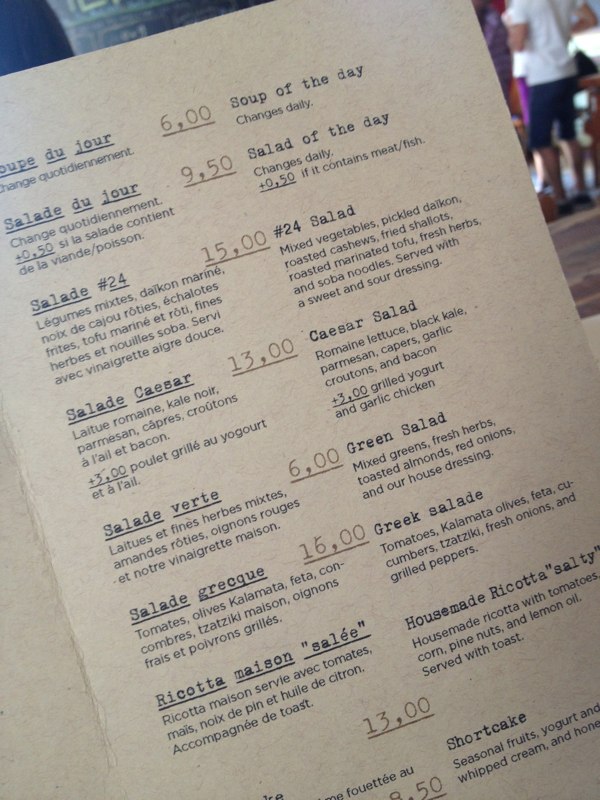 oupe du jour
hange quotidiennement.
6,00
Soup of the day
Changes daily.
Salade du jour
Change quotidiennement.
+0,50 si la salade contient
de la viande/poisson.
9,50
Salad of the day
Changes daily.
+0,50 if it contains meat/fish.
Salade #24
Légumes mixtes, daïkon mariné,
noix de cajou rôties, échalotes
frites, tofu mariné et rôti, fines
herbes et nouilles soba. Servi
avec vinaigrette aigre douce.
15,00
#24 Salad
Mixed vegetables, pickled daïkon,
roasted cashews, fried shallots,
roasted marinated tofu, fresh herbs,
and soba noodles. Served with
a sweet and sour dressing.
Salade Caesar
Laitue romaine, kale noir,
parmesan, câpres, croûtons
à l'ail et bacon.
+3,00 poulet grillé au yogourt
et à l'ail.
13,00
Caesar Salad
Romaine lettuce, black kale,
parmesan, capers, garlic
croutons, and bacon
+3,00 grilled yogurt
and garlic chicken
Salade verte
Laitues et fines herbes mixtes,
amandes rôties, oignons rouges
et notre vinaigrette maison.
6,00
Green Salad
Mixed greens, fresh herbs,
toasted almonds, red onions,
and our house dressing.
Salade grecque
Tomates, olives Kalamata, feta, con-
combres, tzatziki maison, oignons
frais et poivrons grillés.
16,00
Greek salade
Tomatoes, Kalamata olives, feta, cu-
cumbers, tzatziki, fresh onions, and
grilled peppers.
Ricotta maison "salée"
Ricotta maison servie avec tomates,
maïs, noix de pin et huile de citron.
Accompagnée de toast.
13,00
Housemade Ricotta "salty"
Housemade ricotta with tomatoes,
corn, pine nuts, and lemon oil.
Served with toast.
me fouettée au
8,50
Shortcake
Seasonal fruits, yogurt and
whipped cream, and hone